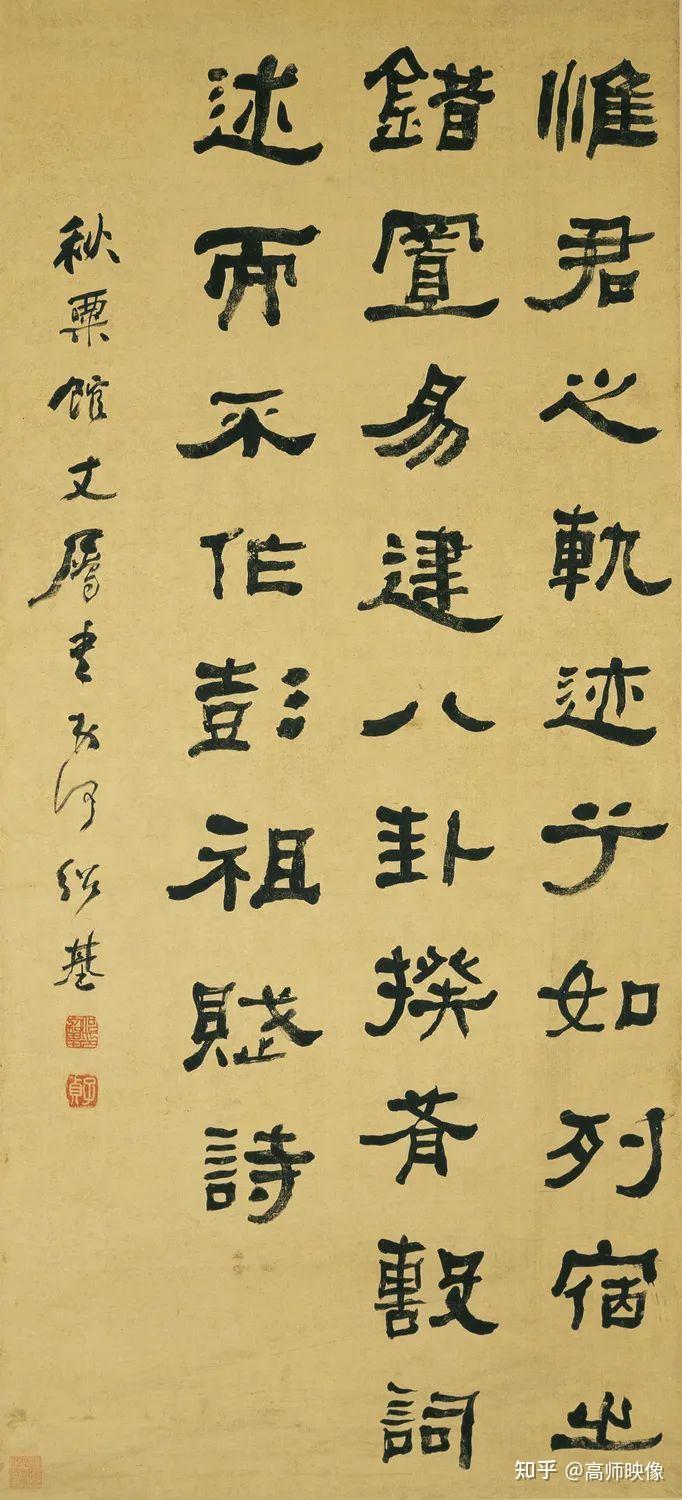 惟君之軌迹兮如列宿之
錯置易建八卦揆肴毄詞
述而不作彭祖賦詩
秋粟館丈屬書弟何紹基
子貞
知乎 @高师映像